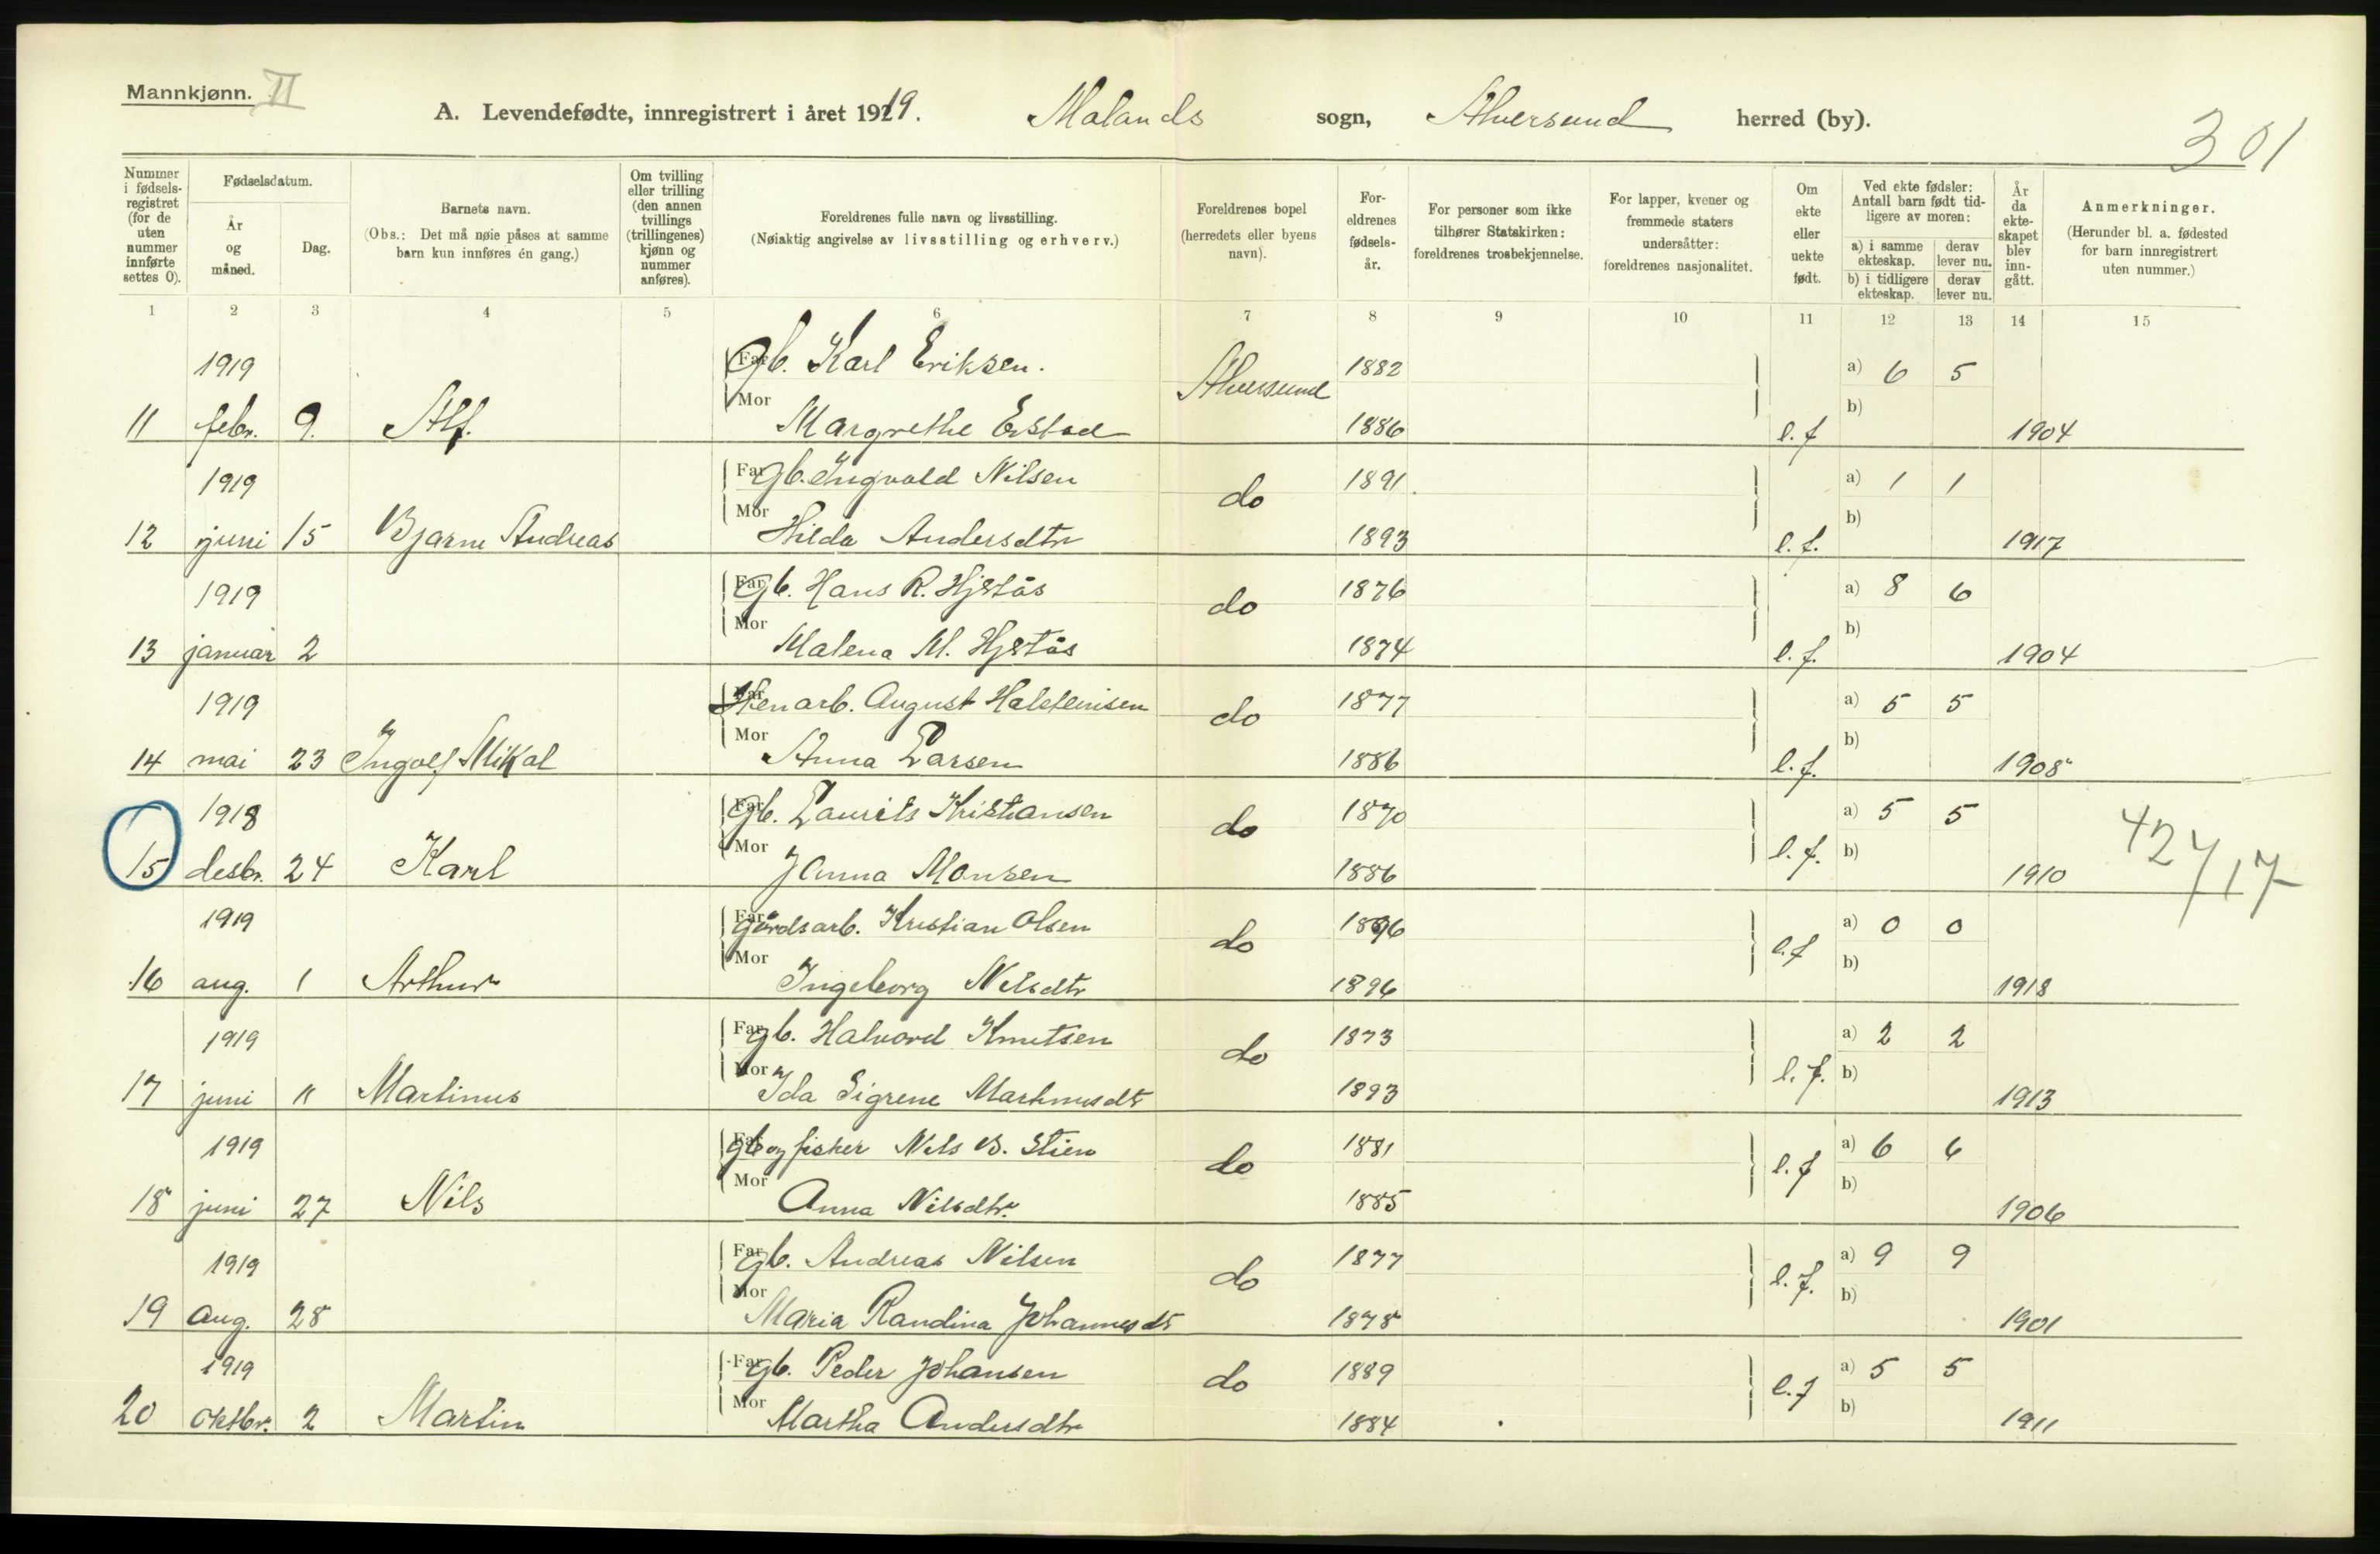 Mannkjønn. II
A. Levendefødte, innregistrert i året 1919. Molands sogn, Alversund herred (by).
301
Nummer i fødselsregistret (for de uten nummer innførte settes 0).
Fødselsdatum.
År og måned.
Dag.
Barnets navn.
(Obs.: Det må nøie påses at samme barn kun innføres én gang.)
Om tvilling eller trilling (den annen tvillings (trillingenes) kjønn og nummer anføres).
Foreldrenes fulle navn og livsstilling.
(Nøiaktig angivelse av livsstilling og erhverv.)
Foreldrenes bopel (herredets eller byens navn).
Foreldrenes fødselsår.
For personer som ikke tilhører Statskirken: foreldrenes trosbekjennelse.
For lapper, kvener og fremmede staters undersåtter: foreldrenes nasjonalitet.
Om ekte eller uekte født.
Ved ekte fødsler: Antall barn født tidligere av moren:
a) i samme ekteskap. derav lever nu.
b) i tidligere ekteskap. derav lever nu.
År da ekteskapet blev inngått.
Anmerkninger.
(Herunder bl. a. fødested for barn innregistrert uten nummer.)
1 2 3 4 5 6 7 8 9 10 11 12 13 14 15
1919 Far gb. Karl Eriksen. Alversund 1882 a) 6 5
11 febr. 9. Alf. Mor Margrethe Erstad 1886 e.f b) 1904
1919 Far gb. Ingvald Nilsen do 1891. a) 1 1
12 juni 15 Bjarne Andreas Mor Hilda Andersdtr 1893 e.f. b) 1917
1919 Far gb. Hans R. Hjetås do 1876 a) 8 6
13 januar 2 Mor Malena M. Hjetås 1874 e.f. b) 1904
1919 Far Stenarb. August Halsteinsen do 1877 a) 5 5
14 mai 23 Ingolf Mikal Mor Anna Larsen 1886 e.f. b) 1908
1918 Far gb. Laurits Kristiansen do 1870 a) 5 5
15 desbr. 24 Karl Mor Janna Monsen 1886 e.f. b) 1910 42717
1919 Far gårdsarb. Kristian Olsen do 1896 a) 0 0
16 aug. 1 Arthur Mor Ingeborg Nilsdtr 1896 e.f b) 1918
1919 Far gb. Halvord Knutsen do 1873 a) 2 2
17 juni 11 Martinus Mor Ida Sigrene Martinusdt 1893 e.f. b) 1913
1919 Far gb og fisker Nils B. Stien do 1881 a) 6 6
18 juni 27 Nils Mor Anna Nilsdtr. 1885 e.f b) 1906
1919 Far gb. Andreas Nilsen do 1877 a) 9 9
19 Aug. 28 Mor Maria Randina Johannesdt 1878 e.f. b) 1901
1919 Far gb. Peder Johansen do 1889 a) 5 5
20 oktbr. 2 Martin Mor Martha Andersdtr 1884 e.f b) 1911